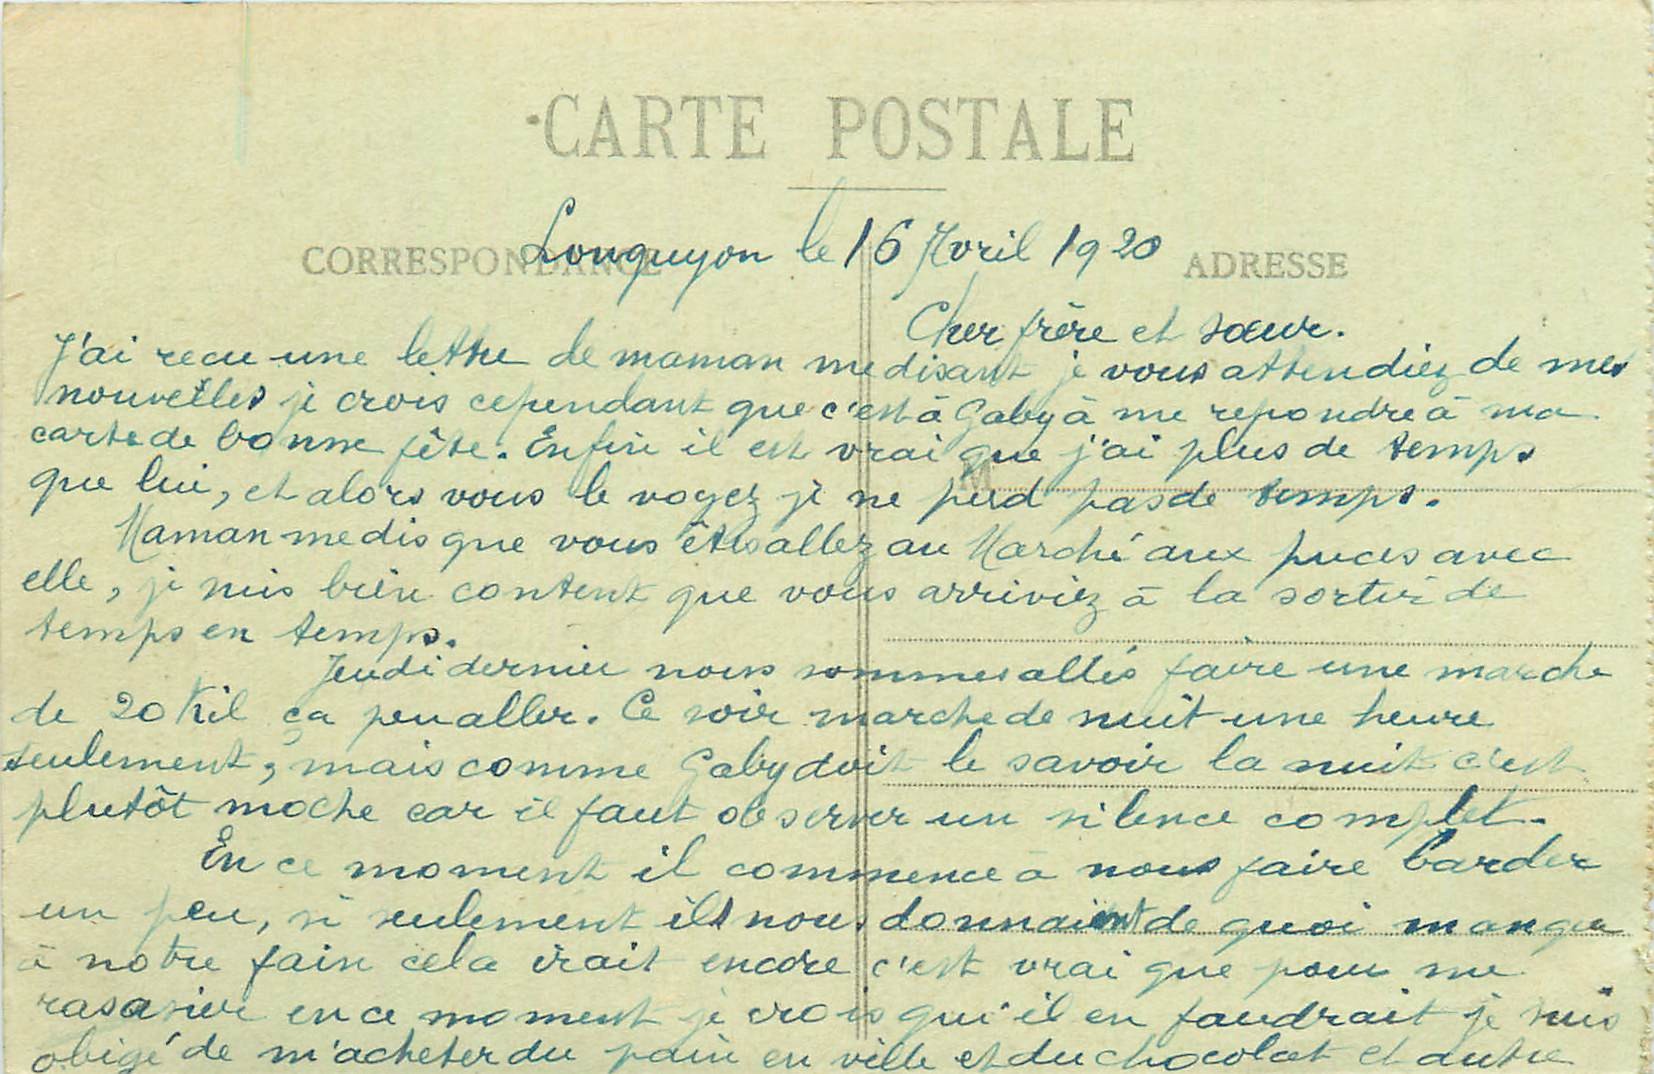 CARTE POSTALE
CORRESPONDANCE
ADRESSE
Longuyon le 16 Avril 1920
Cher frère et sœur.
J'ai recu une lettre de maman me disant je vous attendiez de mes
nouvelles je crois cependant que c'est à Gaby à me repondre à ma
carte de bonne fête. Enfin il est vrai que j'ai plus de temps
M
que lui, et alors vous le voyez je ne perd pas de temps.
Maman me dis que vous êtes allez au Marché aux puces avec
elle, je suis bien content que vous arriviez à la sortir de
temps en temps.
Jeudi dernier nous sommes allés faire une marche
de 20 Kil ça peu aller. Ce soir marche de nuit une heure
seulement, mais comme Gaby doit le savoir la nuit c'est
plutôt moche car il faut observer un silence complet.
En ce moment il commence à nous faire barder
un peu, si seulement ils nous donnaient de quoi manger
à notre faim cela irait encore c'est vrai que pour me
rasasier en ce moment je crois qu'il en faudrait je suis
obigé de m'acheter du pain en ville et du chocolat et autre